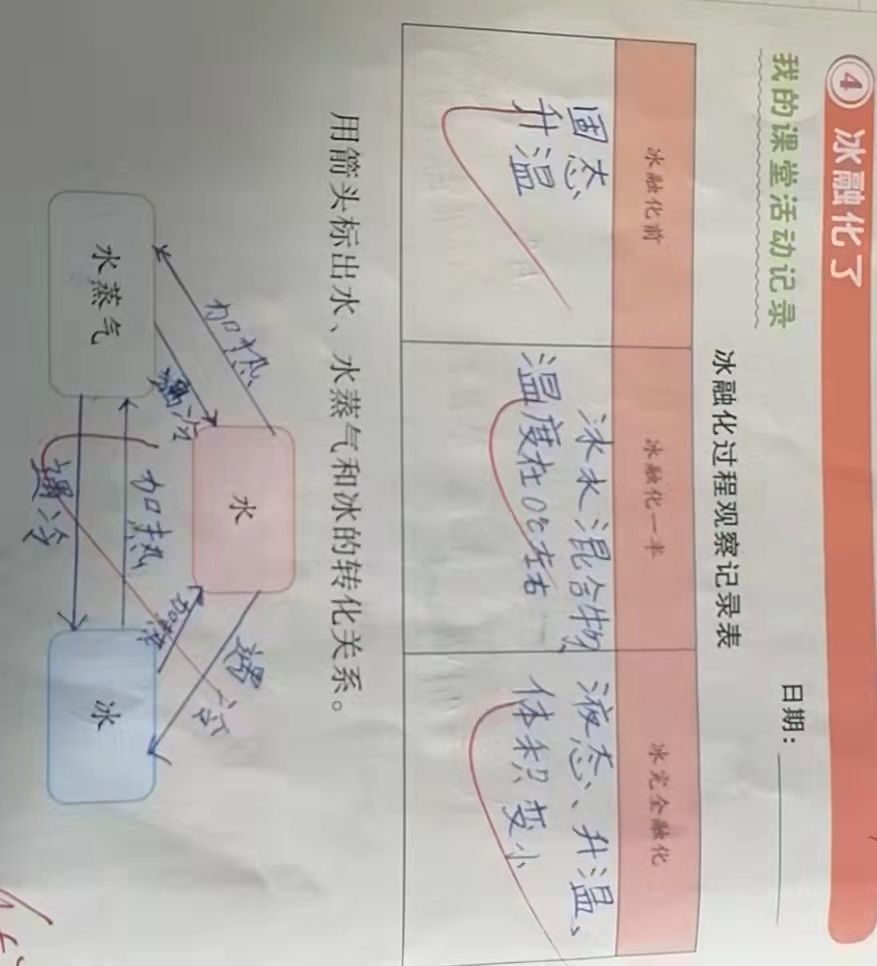 4 冰融化了
我的课堂活动记录
日期：
冰融化过程观察记录表
冰融化前
冰融化一半
冰完全融化
固态
升温
冰水混合物
温度在0℃左右
液态、升温、
体积变小
用箭头标出水、水蒸气和冰的转化关系。
水
加热
遇冷
加热
遇冷
水蒸气
加热
遇冷
冰